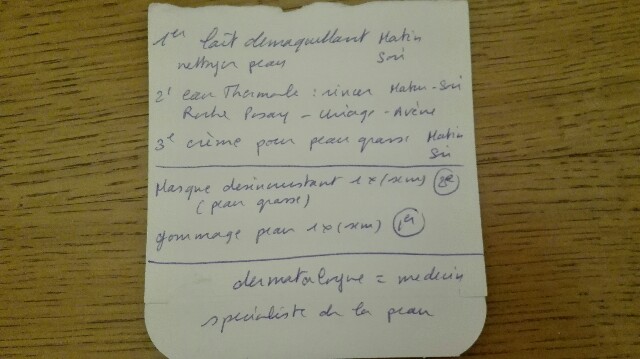 1er lait demaquillant Matin
nettoyer peau Soir
2e eau Thermale : rincer Matin - Soir
Roche Posay - Uriage - Avène
3e crème pour peau grasse Matin
Soir
Masque desincrustant 1 x (sem) 2e
(peau grasse)
gommage peau 1 x (sem) 1er
dermatologue = medecin
specialiste de la peau